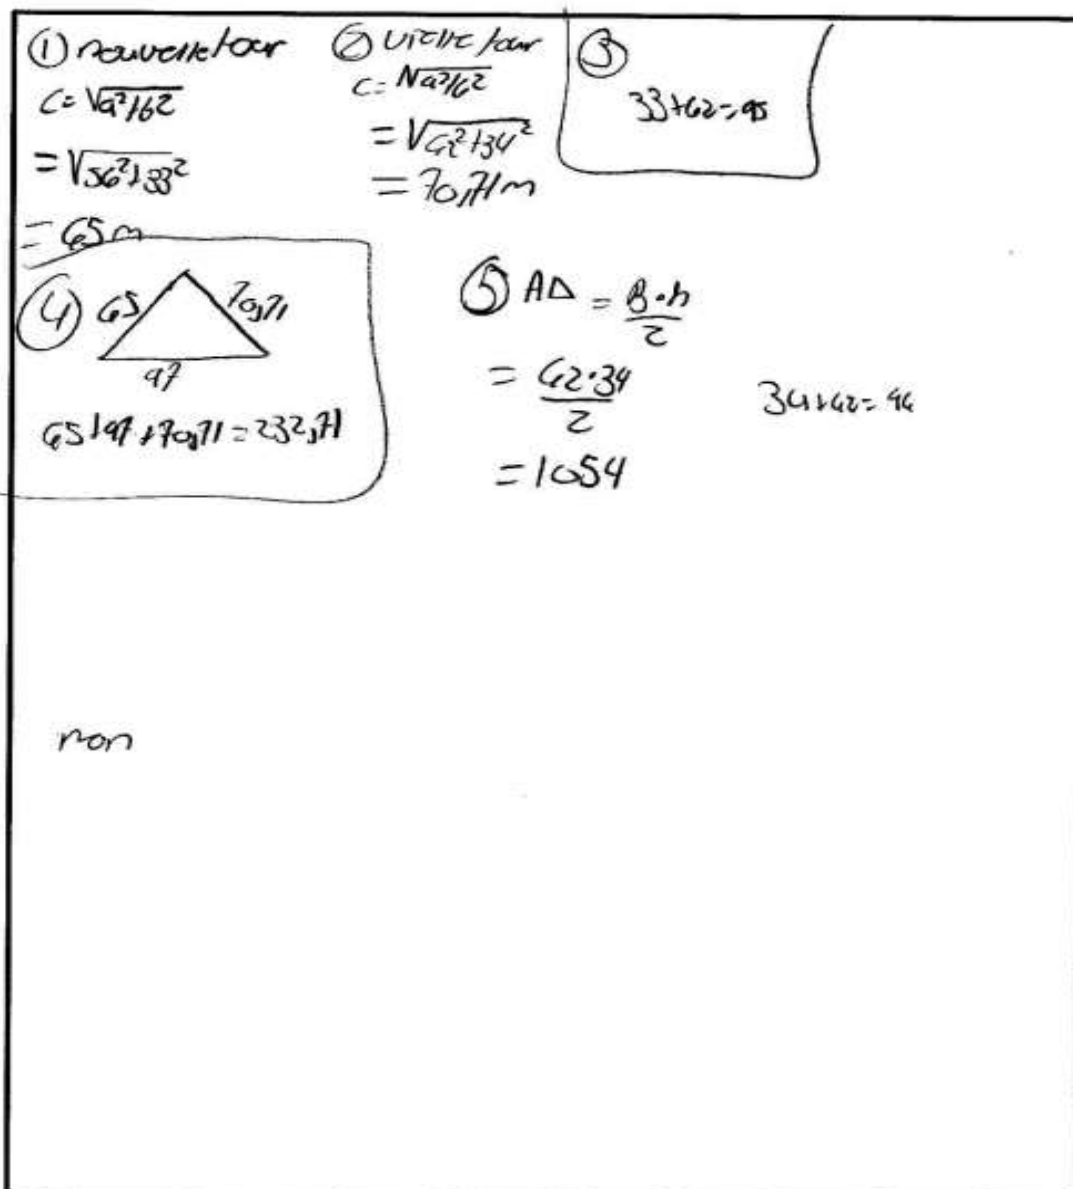 ① nouvelle tour
c = √a²+b²
= √56²+33²
= 65 m
② vielle tour
c = √a²+b²
= √62²+34²
= 70,71 m
③
33+62=95
④
65
70,71
97
65+97+70,71=232,71
⑤ A△ = B·h
2
= 62·34
2
= 1054
34+62=96
non